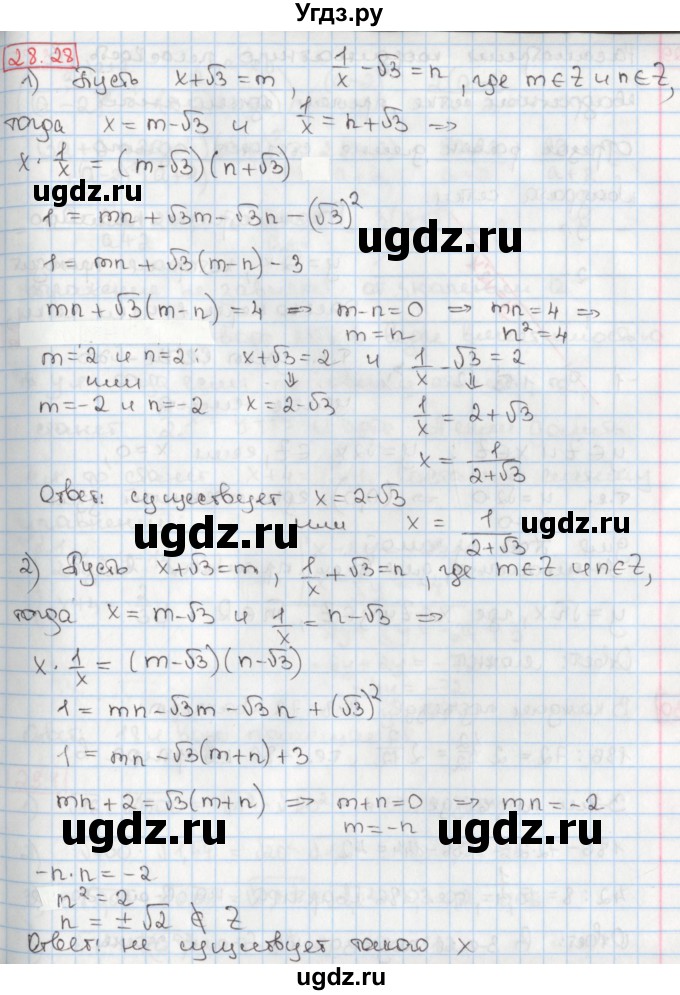 Угдз.ру
28.28
1) Пусть x+√3=m, 1/x-√3=n, где m∈Z и n∈Z,
тогда x=m-√3 и 1/x=n+√3 ⇒
x·1/x=(m-√3)(n+√3)
ugdz.ru
1=mn+√3m-√3n-(√3)²
ugdz.ru
1=mn+√3(m-n)-3
mn+√3(m-n)=4 ⇒ m-n=0 ⇒ mn=4 ⇒
m=n n²=4
m=2 и n=2: x+√3=2 и 1/x-√3=2
или ⇓ ⇓
m=-2 и n=-2 x=2-√3 1/x=2+√3
x=1/(2+√3)
Ответ: существует x=2-√3
или x=1/(2+√3)
ugdz.ru
ugdz.ru
2) Пусть x+√3=m, 1/x+√3=n, где m∈Z и n∈Z,
тогда x=m-√3 и 1/x=n-√3 ⇒
x·1/x=(m-√3)(n-√3)
1=mn-√3m-√3n+(√3)²
1=mn-√3(m+n)+3
mn+2=√3(m+n) ⇒ m+n=0 ⇒ mn=-2
m=-n
ugdz.ru
ugdz.ru
-n·n=-2
n²=2
n=±√2 ∉ Z
Ответ: не существует такого x
ugdz.ru